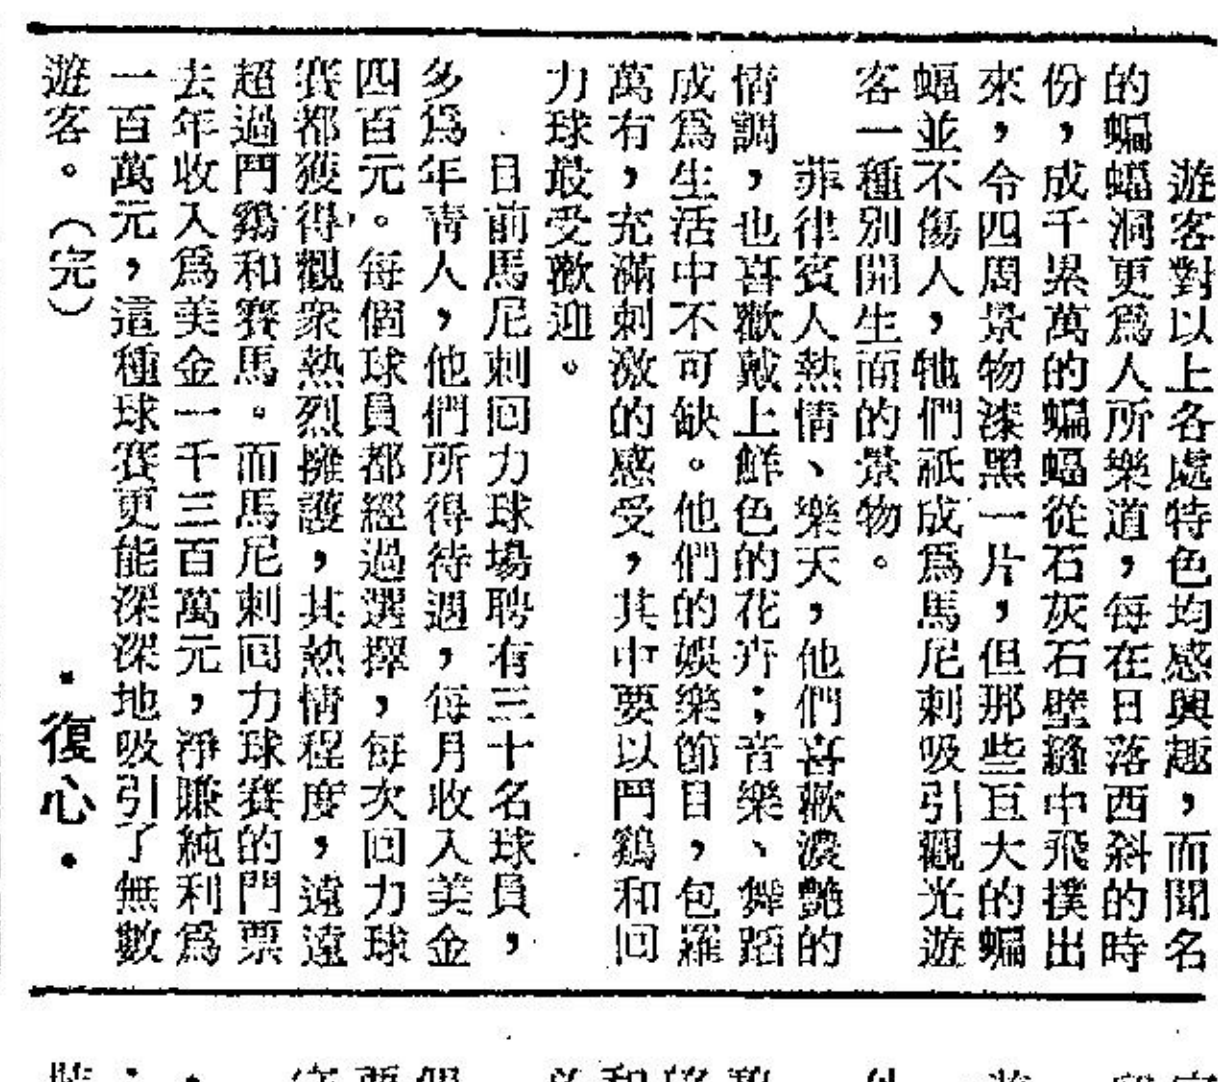 遊客對以上各處特色均感興趣，而聞名
的蝙蝠洞更爲人所樂道，每在日落西斜的時
份，成千累萬的蝙蝠從石灰石壁縫中飛撲出
來，令四周景物漆黑一片，但那些巨大的蝙
蝠並不傷人，牠們祇成爲馬尼刺吸引觀光遊
客一種別開生面的景物。
菲律賓人熱情、樂天，他們喜歡濃艷的
情調，也喜歡戴上鮮色的花卉；音樂、舞蹈
成爲生活中不可缺。他們的娛樂節目，包羅
萬有，充滿刺激的感受，其中要以鬥鷄和回
力球最受歡迎。
目前馬尼刺回力球場聘有三十名球員，
多爲年靑人，他們所得待遇，每月收入美金
四百元。每個球員都經過選擇，每次回力球
賽都獲得觀衆熱烈擁護，其熱情程度，遠遠
超過鬥鷄和賽馬。而馬尼刺回力球賽的門票
去年收入爲美金一千三百萬元，淨賺純利爲
一百萬元，這種球賽更能深深地吸引了無數
遊客。（完）
·復心·